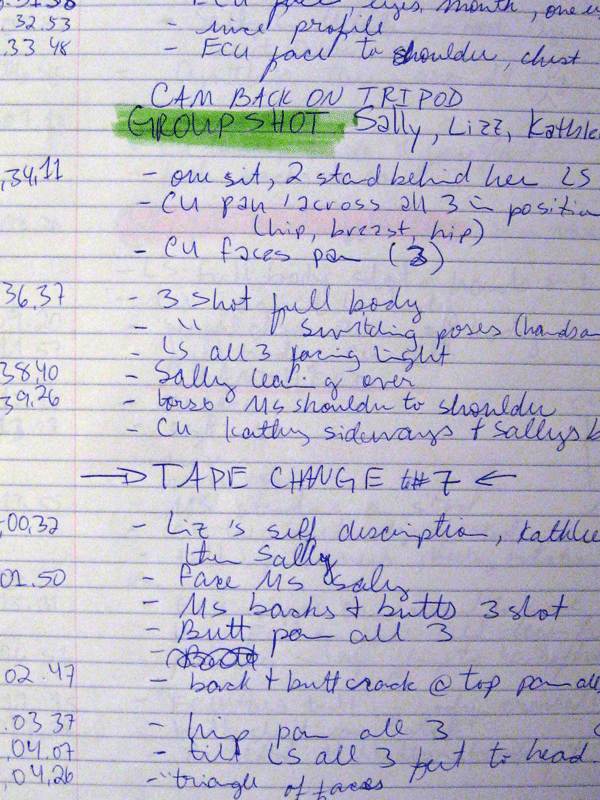 ECU face, eyes, mouth, one e
32.53 - nice profile
.33 48 - ECU face to shoulder, chest
CAM BACK ON TRIPOD
GROUP SHOT Sally, Lizz, Kathle
,34,11 - one sit, 2 stand behind her LS
- CU pan across all 3 in positio
(hip, breast, hip)
- CU faces pan (3)
36,37 - 3 shot full body
- " switching poses (hands on
- LS all 3 facing light
38,40 - Sally leaning over
39,26 - torso MS shoulder to shoulder
- CU Kathy sideways + Sallys b
→ TAPE CHANGE to #7 ←
-00,32 - Liz's self description, Kathlee
then Sally
01.50 - face MS Sally
- MS backs + butts 3 shot
- Butt pan all 3
02.47 - back + butt crack @ top pan all
.03 37 - hip pan all 3
,04.07 - tilt LS all 3 feet to head.
,04,26 - "triangle of faces